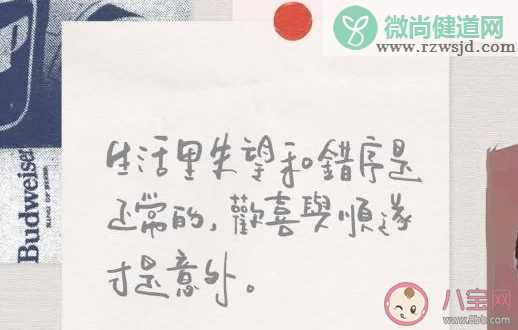 微尚健道网
www.rzwsjd.com
Budweiser
生活里失望和錯序是
正常的，歡喜與順遂
才是意外。
八宝网